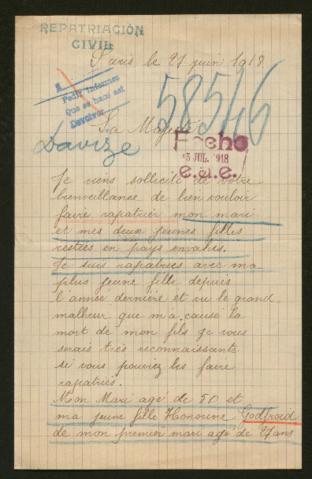 REPATRIACIÓN
CIVIL
Paris le 21 juin 1918.
Pedir informes
que se hace así
Devolver
58546
Sa Majesté
Fecho
5 JUL. 1918
e.a.e.
Davize
Je viens sollicité de votre
bienveillance de bien vouloir
faire rapatrier mon mari
et mes deux jeunes filles
restées en pays envahis.
Je suis rapatriées avec ma
plus jeune fille depuis
l'année dernière et vu le grand
malheur que m'a cause la
mort de mon fils je vous
serais très reconnaissante
si vous pouviez les faire
rapatriés.
Mon Mari agé de 50 et
ma jeune fille Honorine Godfroid
de mon premier mari agé de 27ans